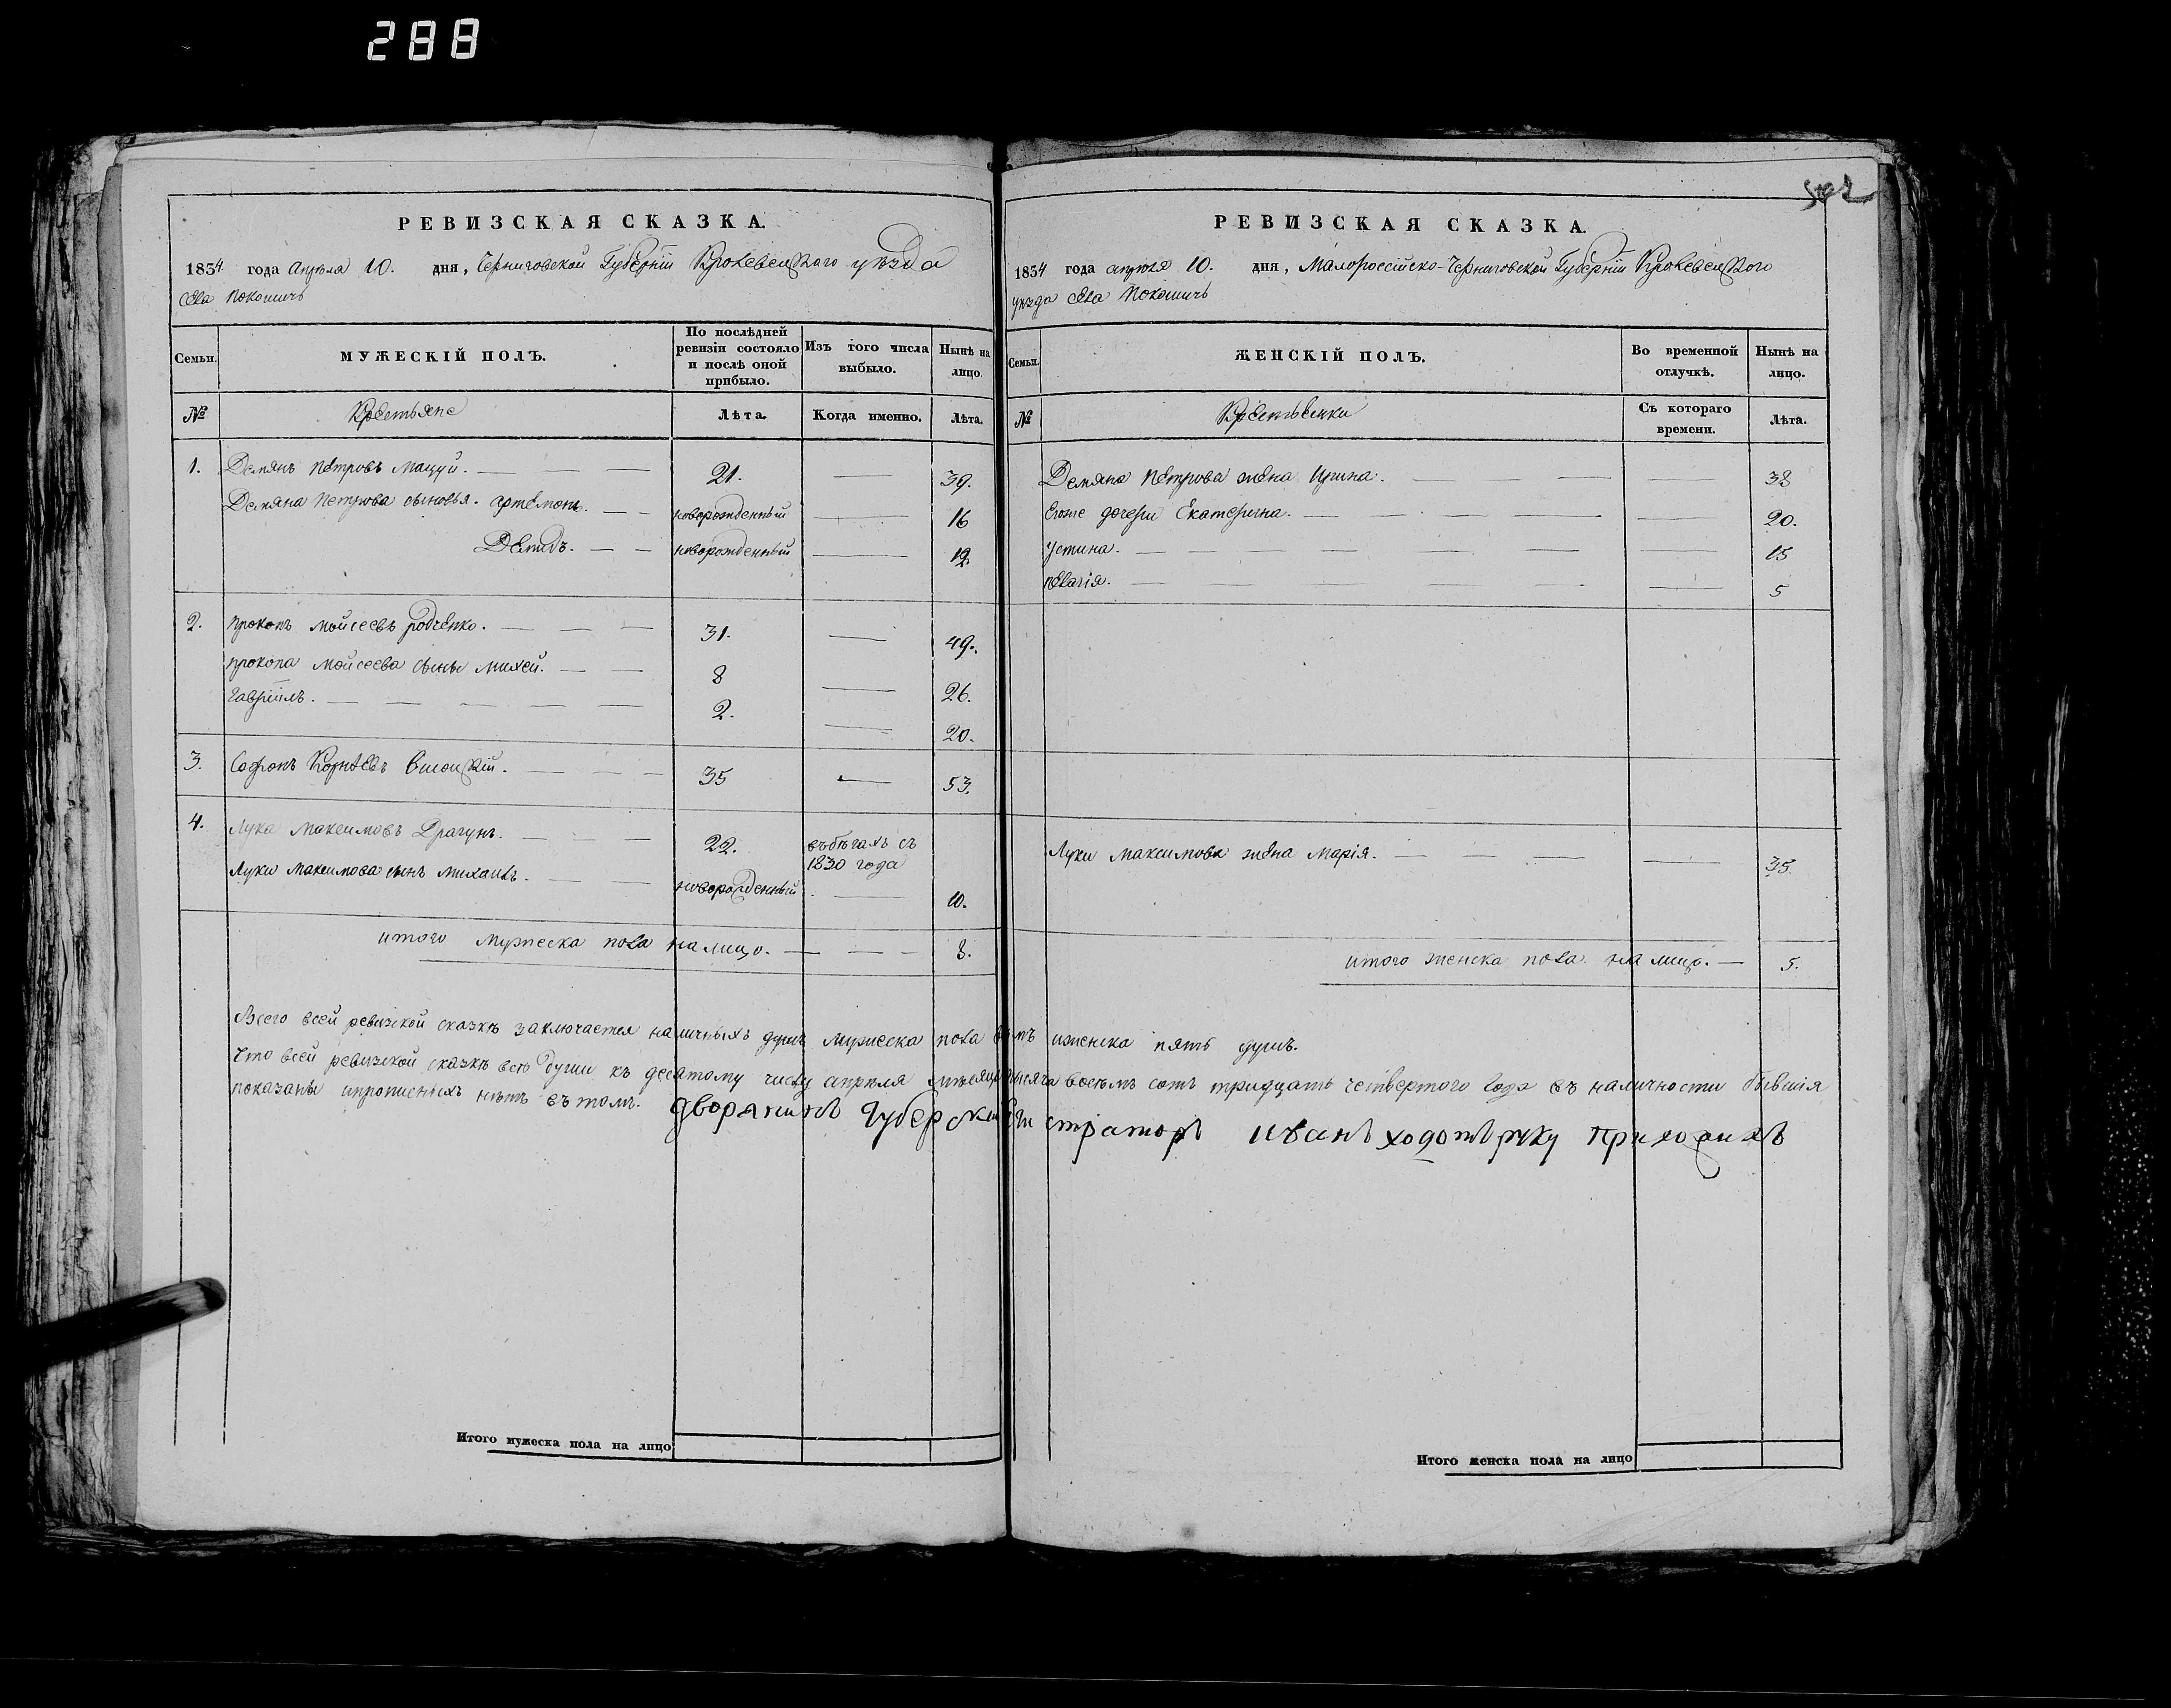 288
РЕВИЗСКАЯ СКАЗКА.
1834 года Апреля 10. дня, Черниговской Губерніи Кролевецкого уезда
села Покошичь
Семьи.
МУЖЕСКІЙ ПОЛЪ.
По послѣдней ревизіи состояло и послѣ оной прибыло.
Изъ того числа выбыло.
Нынѣ на лицо.
№
Крестьяне
Лѣта.
Когда именно.
Лѣта.
1. Демянъ Петровъ Мацуй. 21. 39.
Демяна Петрова сыновья. Артемонъ. новорожденный 16
Демидъ. новорожденный 12.
2. Прокопъ Мойсеевъ Родченко. 31. 49.
Прокопа Мойсеева сыны Михей. 8 26.
Гавріилъ. 2. 20.
3. Софонъ Корнѣевъ 35 53.
4. Лука Максимовъ Драгунъ. 22. въ бѣгахъ съ
1830 года
Луки Максимова сынъ Михаилъ. новорожденный 10.
итого мужеска пола налицо. 8.
502
РЕВИЗСКАЯ СКАЗКА.
1834 года апреля 10. дня, Малороссійско-Черниговской Губерніи Кролевецкого
уезда села Покошичь
Семьи.
ЖЕНСКІЙ ПОЛЪ.
Во временной отлучкѣ.
Нынѣ на лицо.
№
Крестьянки
Съ котораго времени.
Лѣта.
Демяна Петрова жена Ирина. 38
Егоже дочери Екатерина. 20.
Устина. 15
Пелагія. 5
Луки Максимова жена Марія. 35.
итого женска пола на лицо. 5.
Всего всей ревизской сказкѣ заключается наличныхъ душъ мужеска пола иженска пять душъ.
Что всей ревизской сказкѣ всѣ души къ десятому числу апреля восемъ сотъ тридцать четвертого года въ наличности бывшія
показаны ипрописныхъ нѣтъ въ томъ. дворянинъ Иванъ руку приложилъ
Итого мужеска пола на лицо
Итого женска пола на лицо